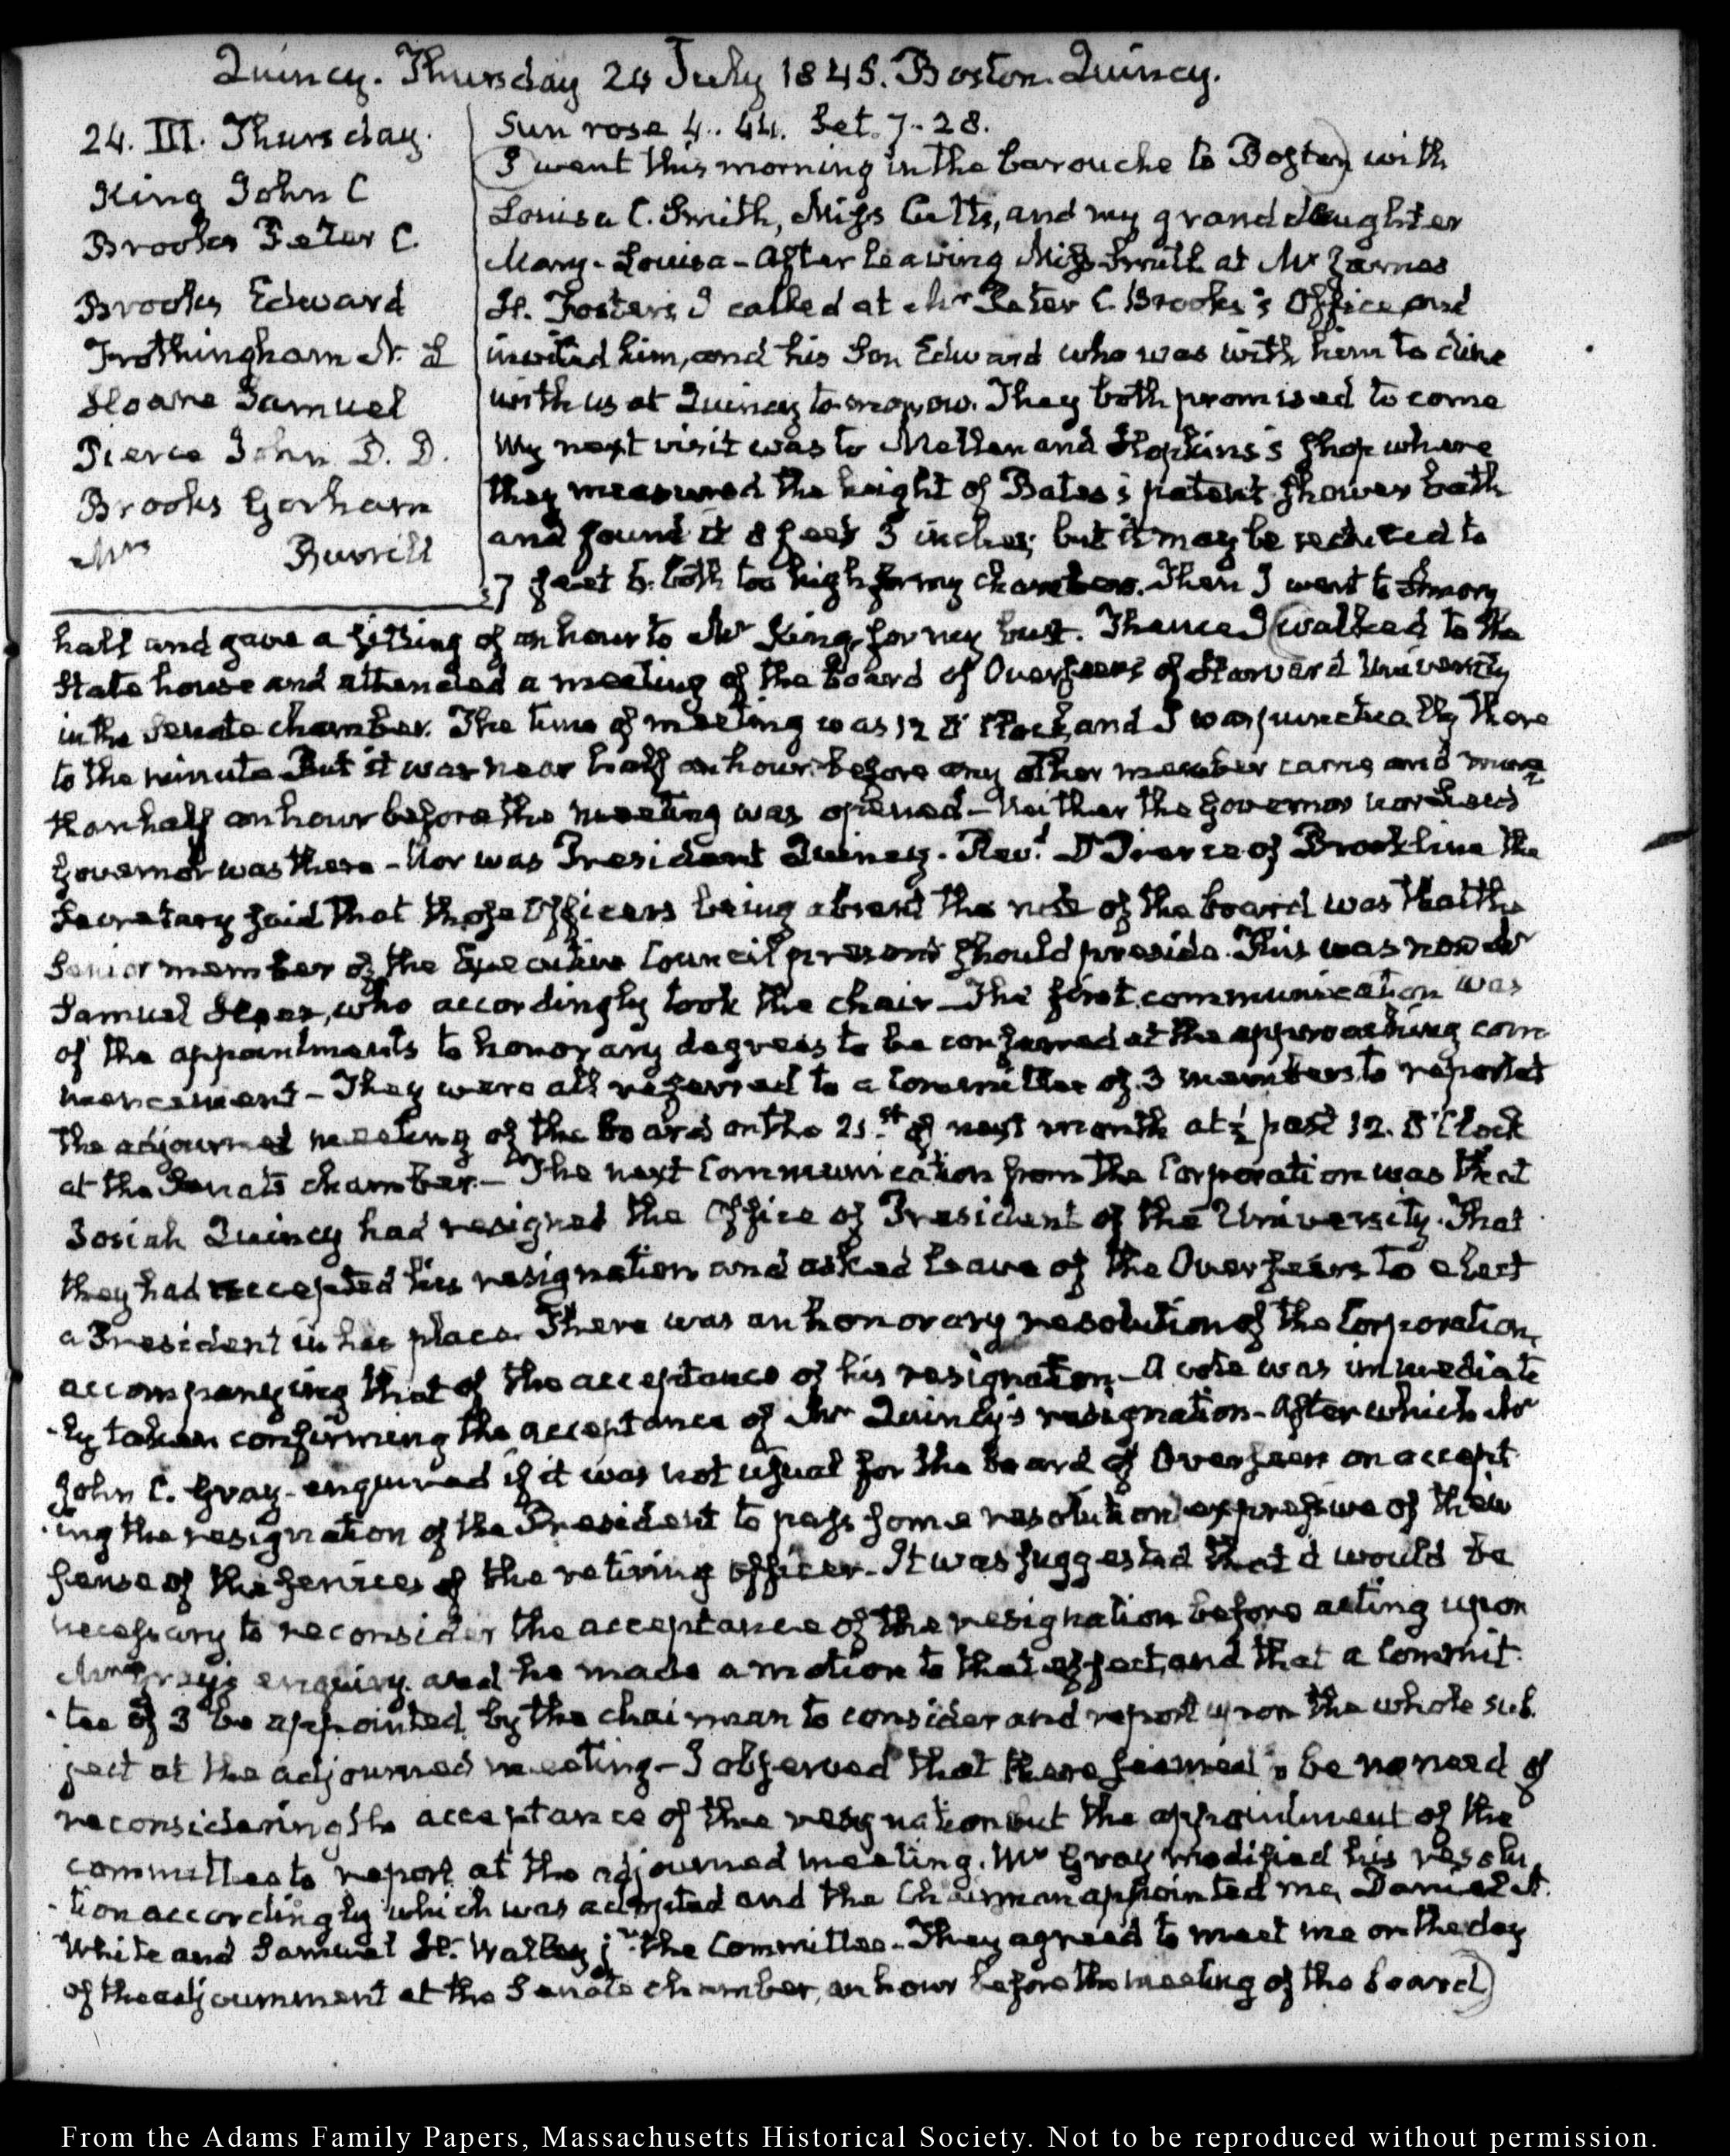 Quincy. Thursday 24 July 1845. Boston. Quincy.
24. III. Thursday.
King John C
Brooks Peter C.
Brooks Edward
Frothingham N. L
Hoare Samuel
Pierce John D. D.
Brooks Gorham
Mrs Burrill
Sun rose 4.. 44. Set. 7-28.
I went this morning in the barouche to Boston with
Louisa C. Smith, Miss Cutts, and my grand daughter
Mary-Louisa - After leaving Miss Smith at Mr James
H. Foster's, I called at Mr Peter C. Brooks's Office and
invited him, and his Son Edward who was with him to dine
with us at Quincy to-morrow. They both promised to come
My next visit was to Mellen and Hopkins's shop where
they measured the height of Bates's patent shower bath
and found it 8 feet 3 inches; but it may be reduced to
7 feet 6. both too high for my chamber. Then I went to Amory
hall and gave a sitting of an hour to Mr King, for my bust. Thence I walked to the
State house and attended a meeting of the board of Overseers of Harvard University
in the Senate chamber. The time of meeting was 12 O'Clock, and I was punctually there
to the minute But it was near half an hour before any other member came and more
than half an hour before the meeting was opened - Neither the Governor nor Lieut
Governor was there - Nor was President Quincy. Revd. Dr Pierce of Brookline the
Secretary said that those Officers being absent the rule of the board was that the
Senior member of the Executive Council present should preside. This was now Mr
Samuel Hoar, who accordingly took the chair - The first communication was
of the appointments to honorary degrees to be conferred at the approaching com
mencement - They were all referred to a Committee of 3 members to report at
the adjourned meeting of the board on the 21.st of next month at ½ past 12. O'Clock
at the Senate chamber. - The next Communication from the Corporation was that
Josiah Quincy had resigned the Office of President of the University. That
they had accepted his resignation and asked leave of the Overseers to elect
a President in his place. There was an honorary resolution of the Corporation,
accompanying that of the acceptance of his resignation - A vote was immediate
-ly taken confirming the acceptance of Mr Quincy's resignation - After which Mr
John C. Gray - enquired if it was not usual for the board of Overseers on accept
-ing the resignation of the President to pass some resolution expressive of their
sense of the services of the retiring officer - It was suggested that it would be
necessary to reconsider the acceptance of the resignation before acting upon
Mr Gray's enquiry. and he made a motion to that effect, and that a Commit
-tee of 3 be appointed by the chairman to consider and report upon the whole sub.
ject at the adjourned meeting - I observed that there seemed to be no need of
reconsidering the acceptance of the resignation but the appointment of the
committee to report at the adjourned meeting. Mr Gray modified his resolu
-tion accordingly which was adopted and the Chairman appointed me, Daniel A.
White and Samuel H. Walley jr. the Committee. They agreed to meet me on the day
of the adjournment at the Senate chamber, an hour before the meeting of the board
From the Adams Family Papers, Massachusetts Historical Society. Not to be reproduced without permission.